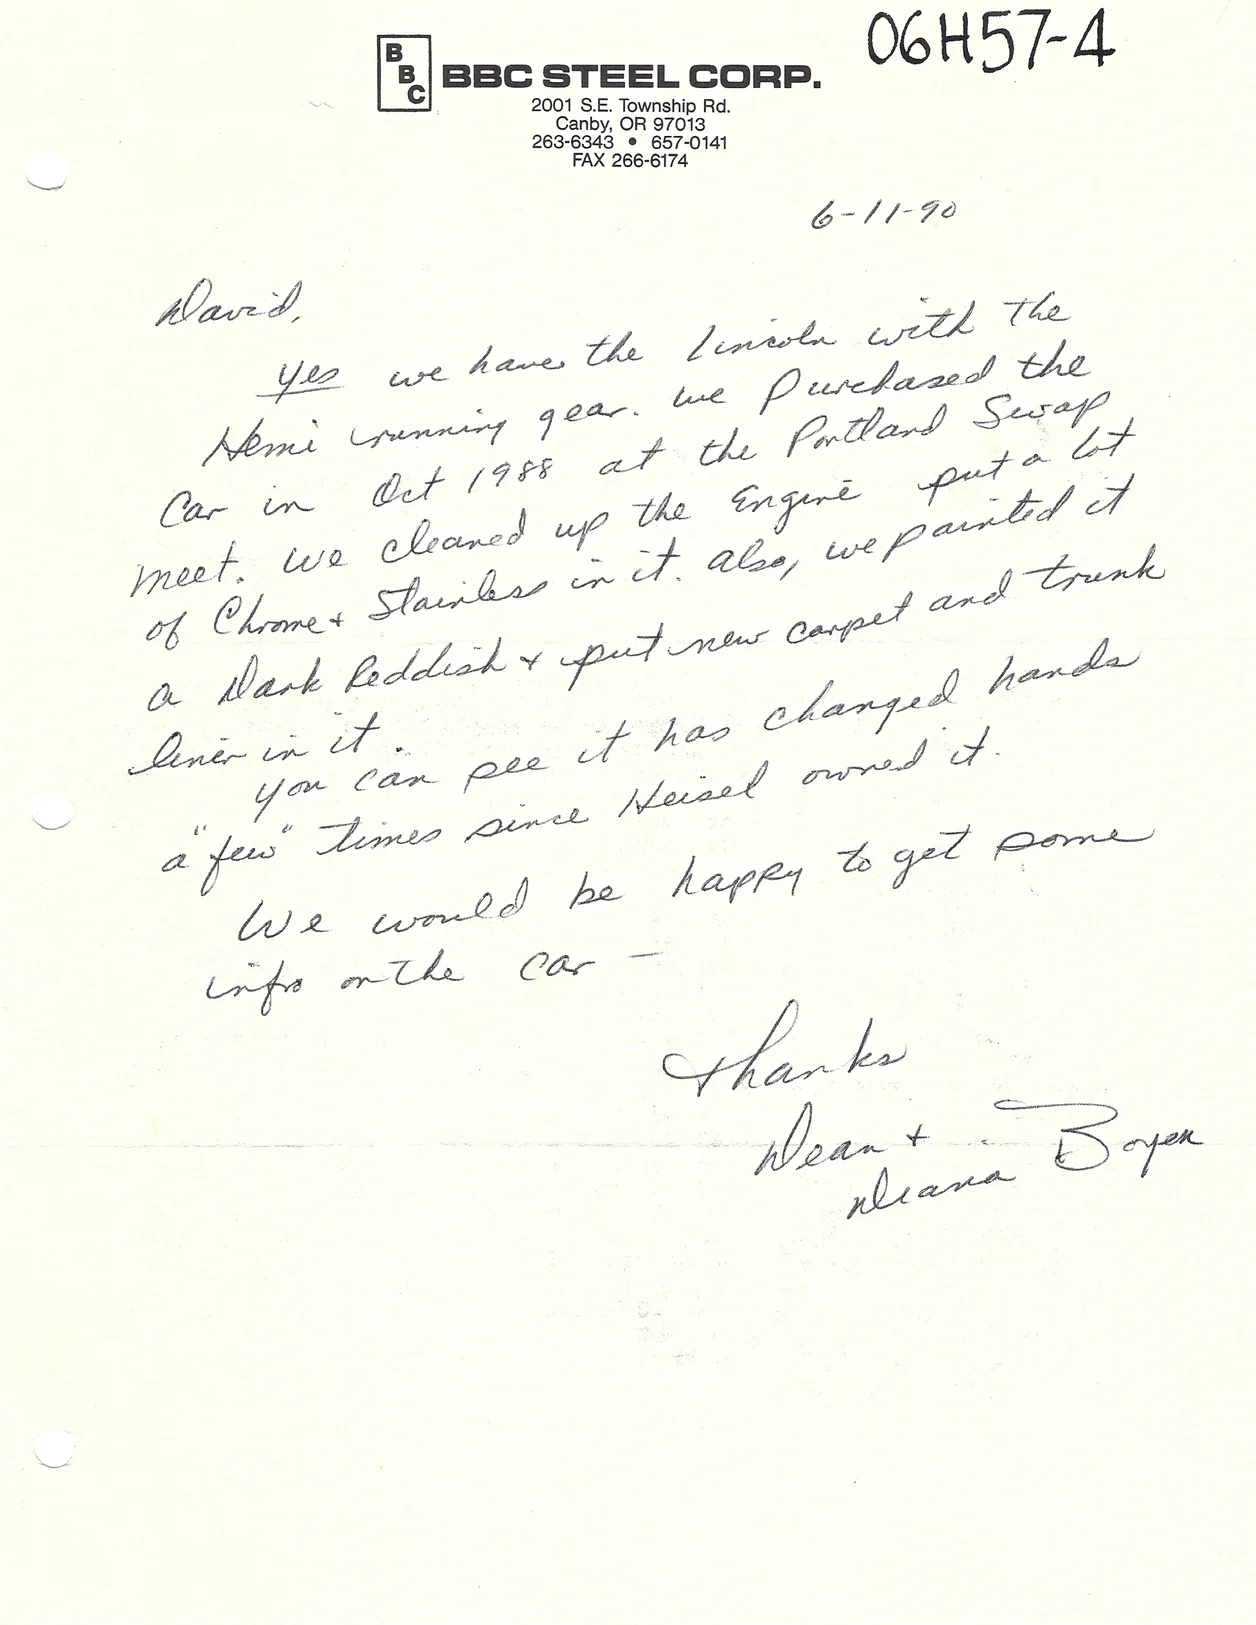 06H57-4
B
B
C
BBC STEEL CORP.
2001 S.E. Township Rd.
Canby, OR 97013
263-6343 • 657-0141
FAX 266-6174
6-11-90
David,
yes we have the Lincoln with the
Hemi running gear. we purchased the
Car in Oct 1988 at the Portland Swap
meet. We cleaned up the Engine put a lot
of Chrome + Stainless in it. also, we painted it
a Dark Reddish + put new carpet and trunk
liner in it.
you can see it has changed hands
a "few" times since Heisel owned it.
We would be happy to get some
info on the car —
Thanks
Dean + Boyer
Diana